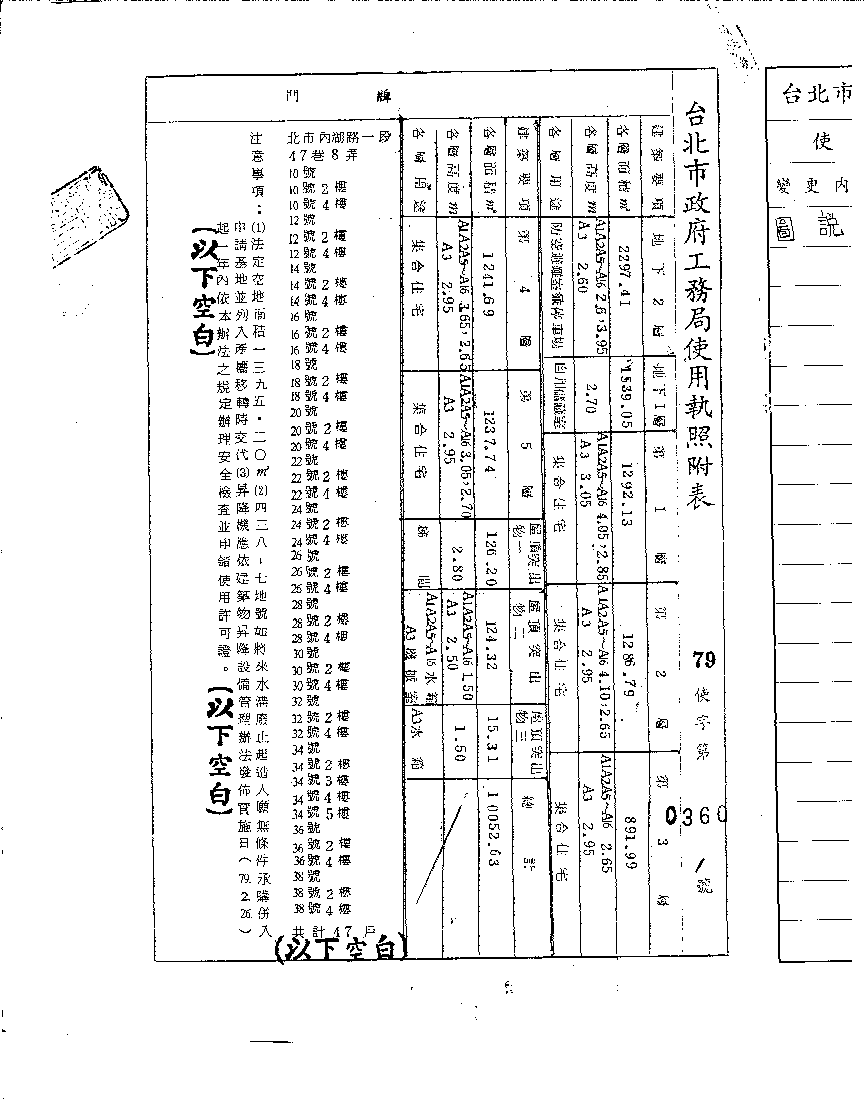 台北市政府工務局使用執照附表
79使字第0360/號
建築要項 地下2層 地下1層 第1層 第2層 第3層
各層面積㎡ 2297.41 1539.05 1292.13 1286.79 891.99
各層高度m A1A2A5~A16 2.6,3.95 A3 2.60 2.70 A1A2A5~A16 4.05,2.85 A3 3.05 A1A2A5~A16 4.10,2.65 A3 2.95 A1A2A5~A16 2.65 A3 2.95
各層用途 防空避難室兼停車場 自用儲藏室 集合住宅 集合住宅 集合住宅
建築要項 第4層 第5層 屋頂突出物一 屋頂突出物二 屋頂突出物三 總計
各層面積㎡ 1241.69 1237.74 126.20 124.32 15.31 10052.63
各層高度m A1A2A5~A16 3.65,2.65 A3 2.95 A1A2A5~A16 3.05,2.70 A3 2.95 2.80 A1A2A5~A16 1.50 A3 2.50 1.50
各層用途 集合住宅 集合住宅 梯間 A1A2A5~A16水箱 A3機械室 A3水箱
門牌
北市內湖路一段
47巷8弄
10號
10號2樓
10號4樓
12號
12號2樓
12號4樓
14號
14號2樓
14號4樓
16號
16號2樓
16號4樓
18號
18號2樓
18號4樓
20號
20號2樓
20號4樓
22號
22號2樓
22號4樓
24號
24號2樓
24號4樓
26號
26號2樓
26號4樓
28號
28號2樓
28號4樓
30號
30號2樓
30號4樓
32號
32號2樓
32號4樓
34號
34號2樓
34號3樓
34號4樓
34號5樓
36號
36號2樓
36號4樓
38號
38號2樓
38號4樓
共計47戶
(以下空白)
注意事項:(1)法定空地面積一三九五.二〇㎡(2)四三八-七地號如將來水溝廢止起造人願無條件承購併入
申請基地並列入產權移轉時交代(3)昇降機應依建築物昇降設備管理辦法發佈實施日(79.2.26.)
起一年內依本辦法之規定辦理安全檢查並申請使用許可證。
(以下空白)
(以下空白)
台北市
使
變更內
圖說